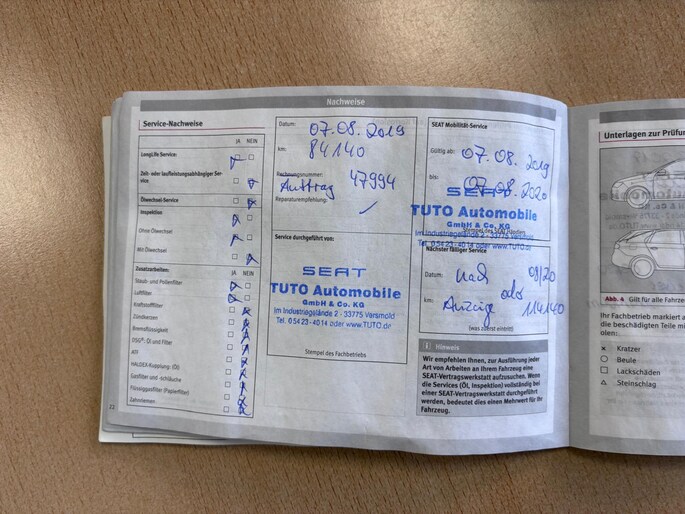 Nachweise
Service-Nachweise
JA NEIN
LongLife Service:
Zeit- oder laufleistungsabhängiger Ser-
vice:
Ölwechsel-Service
Inspektion
Ohne Ölwechsel
Mit Ölwechsel
Zusatzarbeiten: JA NEIN
Staub- und Pollenfilter
Luftfilter
Kraftstofffilter
Zündkerzen
Bremsflüssigkeit
DSG®: Öl und Filter
ATF
HALDEX-Kupplung: (Öl)
Gasfilter und -schläuche
Flüssiggasfilter (Papierfilter)
Zahnriemen
Datum: 07.08.2019
km: 84140
Rechnungsnummer: 47994
Auftrag
Reparaturempfehlung:
Service durchgeführt von:
SEAT
TUTO Automobile
GmbH & Co. KG
Im Industriegelände 2 - 33775 Versmold
Tel. 0 54 23 - 40 14 oder www.TUTO.de
Stempel des Fachbetriebs
SEAT Mobilität-Service
Gültig ab: 07.08.2019
bis: 07.08.2020
SEAT
TUTO Automobile
GmbH & Co. KG
Stempel des SEAT Händlers
Im Industriegelände 2 - 33775 Versmold
Tel. 0 54 23 - 40 14 oder www.TUTO.de
Nächster fälliger Service
Datum: nach 08/20
oder
km: Anzeige 114140
(was zuerst eintritt)
i Hinweis
Wir empfehlen Ihnen, zur Ausführung jeder
Art von Arbeiten an Ihrem Fahrzeug eine
SEAT-Vertragswerkstatt aufzusuchen. Wenn
die Services (Öl, Inspektion) vollständig bei
einer SEAT-Vertragswerkstatt durchgeführt
werden, bedeutet dies einen Mehrwert für Ihr
Fahrzeug.
Unterlagen zur Prüfun
Abb. 4 Gilt für alle Fahrze
Ihr Fachbetrieb markiert a
die beschädigten Teile mi
olen:
Kratzer
Beule
Lackschäden
Steinschlag